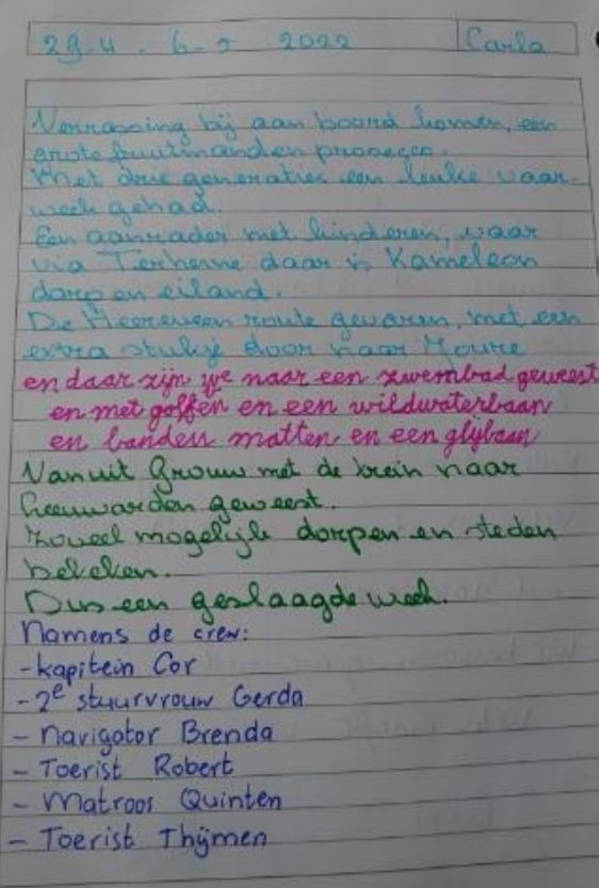 29-4 - 6-5 2022 Carla
Verrassing bij aan boord komen, een
grote fruitmand en prosecco.
Met drie generaties een leuke vaar-
week gehad.
Een aanrader met kinderen, vaar
via Terherne daar is Kameleon
dorp en eiland.
De Heereveen route gevaren, met een
extra stukje door naar Joure
en daar zijn we naar een zwembad geweest
en met golfen en een wildwaterbaan
en banden matten en een glijbaan
Vanuit Grouw met de trein naar
Leeuwarden geweest.
Zoveel mogelijk dorpen en steden
bekeken.
Dus een geslaagde week.
Namens de crew:
- kapitein Cor
- 2e stuurvrouw Gerda
- Navigator Brenda
- Toerist Robert
- Matroos Quinten
- Toerist Thijmen